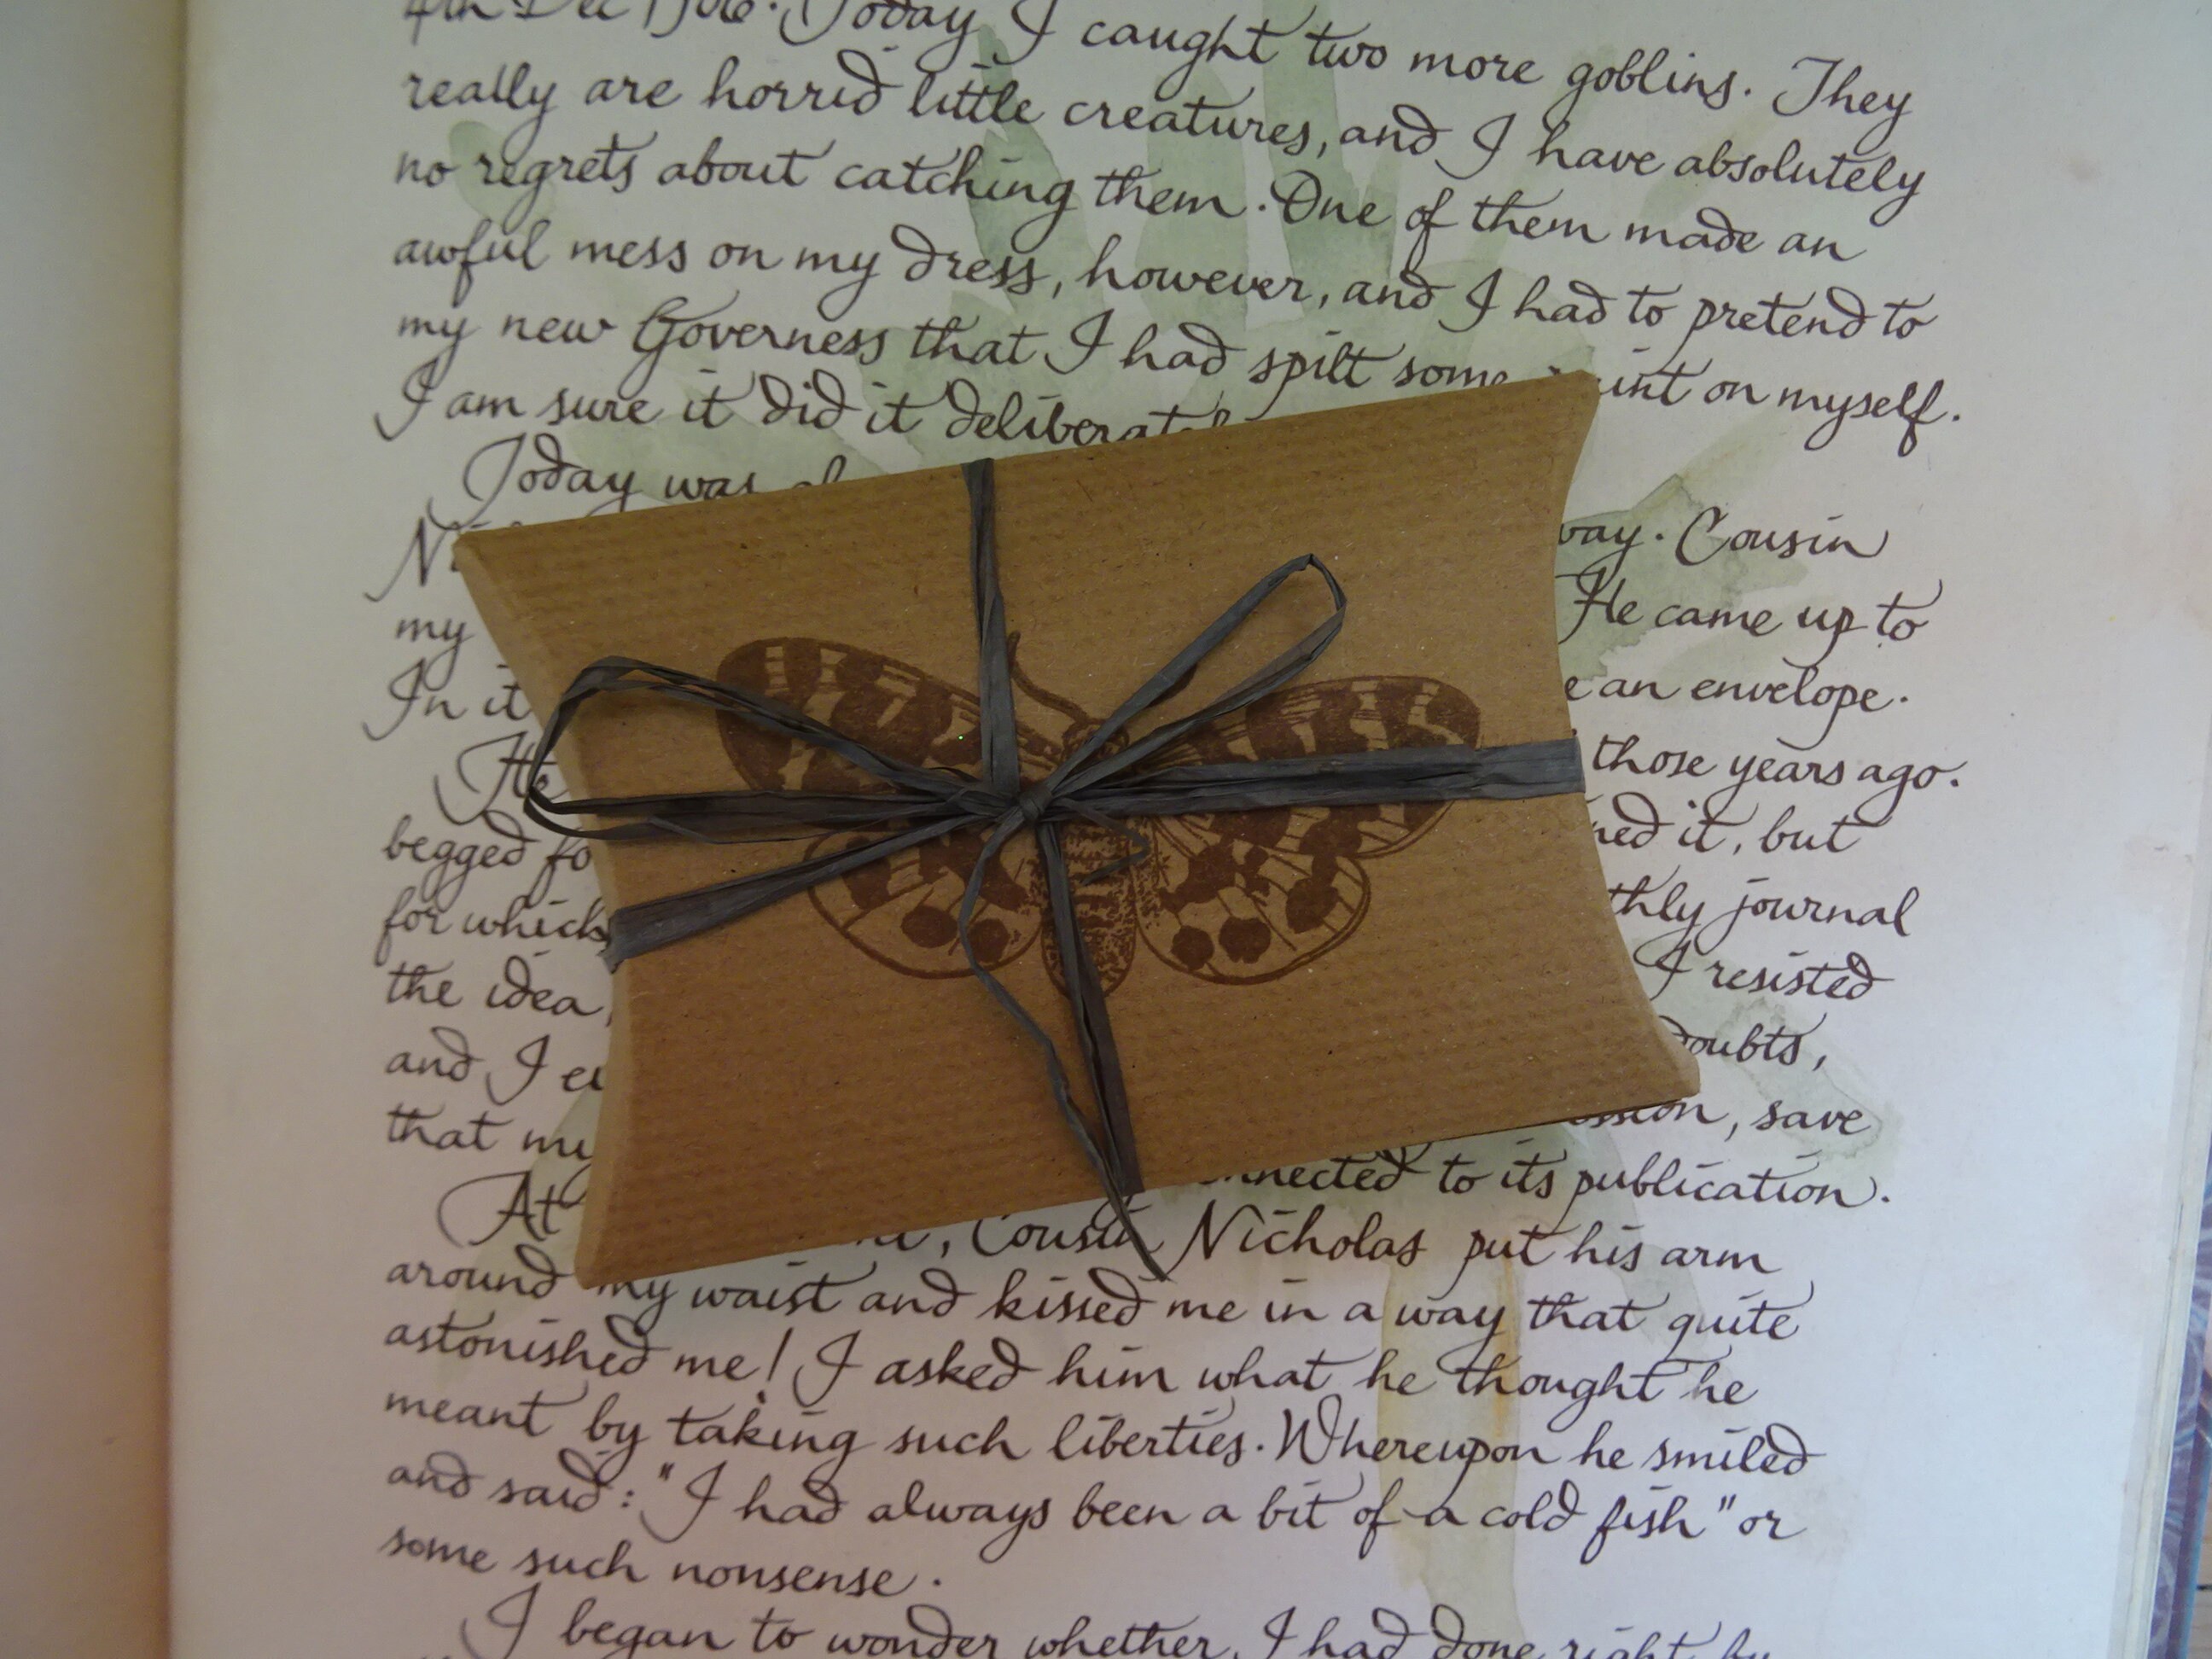 Today I caught two more goblins. They
really are horrid little creatures, and I have absolutely
no regrets about catching them. One of them made an
awful mess on my dress, however, and I had to pretend to
my new Governess that I had spilt some on myself.
I am sure it did it
Today was
way. Cousin
my He came up to
In it an envelope.
He those years ago.
begged it, but
for which journal
the idea, I resisted
and I doubts,
that save
to its publication.
At Cousin Nicholas put his arm
around my waist and kissed me in a way that quite
astonished me! I asked him what he thought he
meant by taking such liberties. Whereupon he smiled
and said: "I had always been a bit of a cold fish" or
some such nonsense.
I began to wonder whether I had done right by